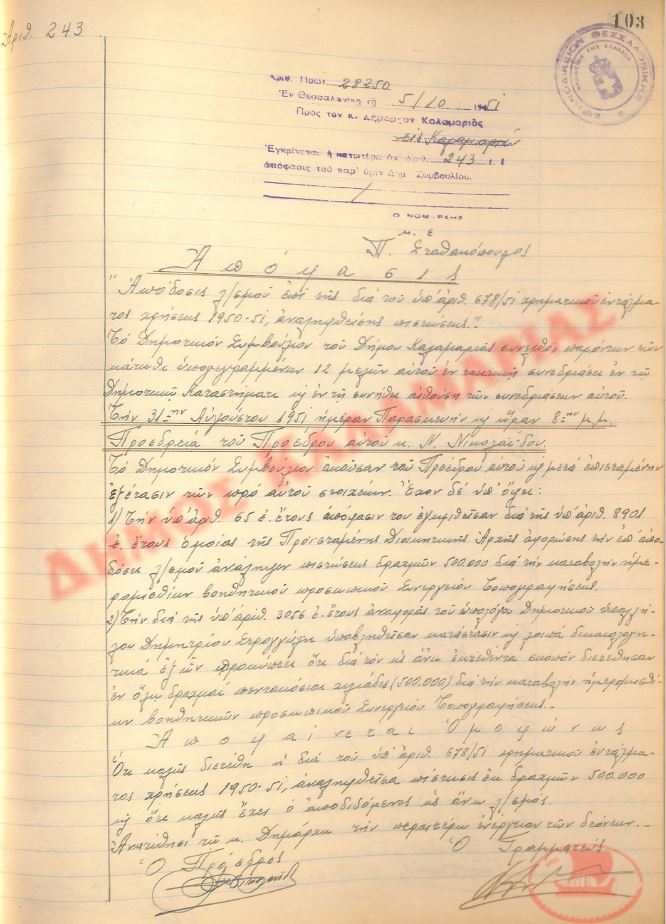 Ἀριθ. 243
103
ΕΙΡΗΝΟΔΙΚΕΙΟΝ ΘΕΣΣΑΛΟΝΙΚΗΣ
ΒΑΣΙΛΕΙΟΝ ΤΗΣ ΕΛΛΑΔΟΣ
Ἀριθ. Πρωτ. 28250
Ἐν Θεσσαλονίκῃ τῇ 5/10 1951
Πρὸς τὸν κ. Δήμαρχον Καλαμαριᾶς
εἰς Καλαμαριάν
Ἐγκρίνεται ἡ κατωτέρω ὑπ' ἀριθ. 243 ἐ. ἔ.
ἀπόφασις τοῦ παρ' ὑμῖν Δημ. Συμβουλίου.
Ο ΝΟΜΑΡΧΗΣ
μ. ἐ.
Π. Σταθακόπουλος
Ἀπόφασις
"Ἀπόδοσις λ/σμοῦ ἐπὶ τῆς διὰ τοῦ ὑπ' ἀριθ. 678/51 χρηματικοῦ ἐντάλμα-
τος χρήσεως 1950-51, ἀναληφθείσης πιστώσεως".
Τὸ Δημοτικὸν Συμβούλιον τοῦ Δήμου Καλαμαριᾶς συνελθὸν παρόντων τῶν
κάτωθι ὑπογεγραμμένων 12 μελῶν αὐτοῦ ἐν τακτικῇ συνεδριάσει ἐν τῷ
Δημοτικῷ Καταστήματι κ ἐν τῇ συνήθει αἰθούσῃ τῶν συνεδριάσεων αὐτοῦ.
Τὴν 31ην Αὐγούστου 1951 ἡμέραν Παρασκευὴν κ ὥραν 8ην μ.μ.
Προεδρείᾳ τοῦ Προέδρου αὐτοῦ κ. Ν. Νικολαΐδου.
Τὸ Δημοτικὸν Συμβούλιον ἀκοῦσαν τοῦ Προέδρου αὐτοῦ κ μετὰ ἐπισταμένην
ἐξέτασιν τῶν πρὸ αὐτοῦ στοιχείων. Ἔχον δὲ ὑπ' ὄψει:
1) Τὴν ὑπ' ἀριθ. 65 ἐ. ἔτους ἀπόφασίν του ἐγκριθεῖσαν διὰ τῆς ὑπ' ἀριθ. 8901
ἐ. ἔτους ὁμοίας τῆς Προϊσταμένης Διοικητικῆς Ἀρχῆς ἀφορώσης τὴν ἐπ' ἀπο-
δόσει λ/σμοῦ ἀνάληψιν πιστώσεως δραχμῶν 500.000 διὰ τὴν καταβολὴν ἡμε-
ρομισθίων βοηθητικοῦ προσωπικοῦ Συνεργείου Τοπογραφήσεως.
2) Τὴν διὰ τῆς ὑπ' ἀριθ. 3056 ἐ. ἔτους ἀναφορᾶς τοῦ ὑπολόγου Δημοτικοῦ Ὑπαλλή-
λου Δημητρίου Στρογγύλη ὑποβληθεῖσαν κατάστασιν κ λοιπὰ δικαιολογη-
τικά ἐξ ὧν προκύπτει ὅτι διὰ τὸν ὡς ἄνω ἐκτεθέντα σκοπὸν διετέθησαν
ἐν ὅλῳ δραχμαὶ πεντακόσιαι χιλιάδες (500.000) διὰ τὴν καταβολὴν ἡμερομισθί-
ων βοηθητικοῦ προσωπικοῦ Συνεργείου Τοπογραφήσεως.-
Ἀποφαίνεται Ὁμοφώνως
Ὅτι καλῶς διετέθη ἡ διὰ τοῦ ὑπ' ἀριθ. 678/51 χρηματικοῦ ἐντάλμα-
τος χρήσεως 1950-51, ἀναληφθεῖσα πίστωσις ἐκ δραχμῶν 500.000
κ ὅτι καλῶς ἔχει ὁ ἀποδιδόμενος ὡς ἄνω λ/σμός.
Ἀνατίθησι τῷ κ. Δημάρχῳ τὴν περαιτέρω ἐνέργειαν τῶν δεόντων.-
Ὁ Πρόεδρος Ὁ Γραμματεὺς
ΔΗΜΟΣ ΚΑΛΑΜΑΡΙΑΣ